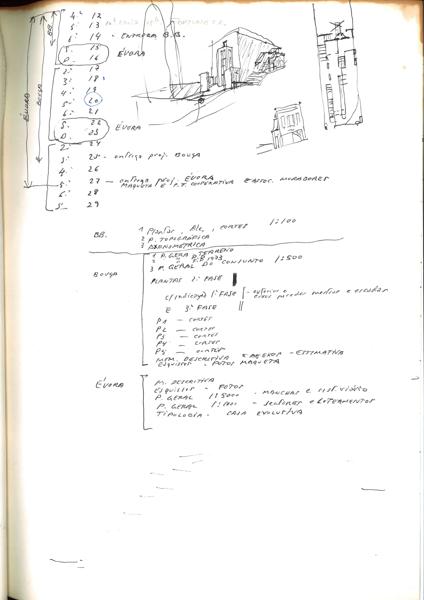 4ª 12
5ª 13
6ª 14 - ENTREGA B.B.
S. 15
D. 16 ÉVORA
2ª 17
3ª 18
4ª 19
5ª 20
6ª 21
S. 22 ÉVORA
D. 23
2ª 24
3ª 25 - entrega proj. BOUÇA
4ª 26
5ª 27 - entrega proj. ÉVORA
MAQUETA E P.T. COOPERATIVA E ASSOC. MORADORES
6ª 28
S. 29
BB
BOUÇA
ÉVORA
BB. 1 Plantas, Alç., CORTES 1:100
2 P. TOPOGRÁFICA
3 AXONOMETRICA
BOUÇA 1 P. GERAL TERRENO
2 " 1973
3 P. GERAL DO CONJUNTO 1:500
PLANTAS 1ª FASE
c/ indicação 1ª FASE
E 3ª FASE
P1 - cortes
P2 - cortes
P3 - cortes
P4 - cortes
P5 - cortes
MEM. DESCRITIVA - ESTIMATIVA
ESQUISSOS - FOTOS MAQUETA
ÉVORA M. DESCRITIVA
ESQUISSOS - FOTOS
P. GERAL 1:5000 - MANCHAS e rede viária
P. GERAL 1:1000 - SECTORES e LOTEAMENTOS
TIPOLOGIA - CASA EVOLUTIVA